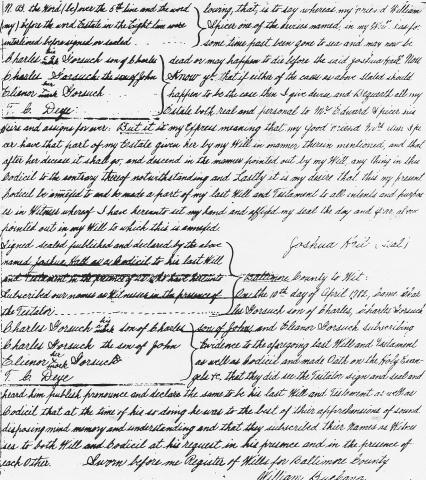 N. B. the word (be) over the 5th line and the word
(my) before the word Estate in the Eight line were
interlined before signed or sealed
Charles his mark Gorsuch son of Charles
Charles Gorsuch the son of John
Elianor her mark Gorsuch
T. C. Deye
lowing, that is to say whereas my friend William
Spicer one of the devisees named, in my Will has for
some time past been gone to sea and may now be
dead or may happen to die before the said Joshua Hall Now
Know ye that if either of the cases as above stated should
happen to be the case then I give devise and Bequeath all my
Estate both real and personal to Mr. Edward Spicer his
heirs and assigns for ever. But it is my express meaning that my good friend
ver have that part of my Estate given her by my Will in manner therein mentioned, and that
after her decease it shall go, and descend in the manner pointed out by my Will, any thing in this
Codicil to the contrary thereof notwithstanding and Lastly it is my desire that this my present
Codicil be annexed to and be made a part of my last Will and Testament to all intents and purpos
es in Witness whereof I have hereunto set my hand and affixed my seal the day and year above
pointed out in my Will to which this is annexed
Signed sealed published and declared by the above
named Joshua Hall as a Codicil to his last Will
and Testament in the presence of us who have hereunto
subscribed our names as Witnesses in the presence of
the Testator
Charles Gorsuch his mark son of Charles
Charles Gorsuch the son of John
Elienor her mark Gorsuch
T. C. Deye
Joshua Hall (Seal)
Baltimore County to Wit:
On the 10th day of April 1782, Came Char
les Gorsuch son of Charles, Charles Gorsuch
son of John, and Eleanor Gorsuch subscribing
Evidence to the aforegoing Last Will and Testament
as well as Codicil and made Oath on the Holy Evan
gels &c. that they did see the Testator sign and seal and
heard him publish pronounce and declare the same to be his last Will and Testament as well as
Codicil that at the time of his so doing he was to the best of their apprehensions of sound
disposing mind memory and understanding and that they subscribed their Names as Witnes
ses to both Will and Codicil at his request in his presence and in the presence of
each Other. Sworn before me Register of Wills for Baltimore County
William Buchanan